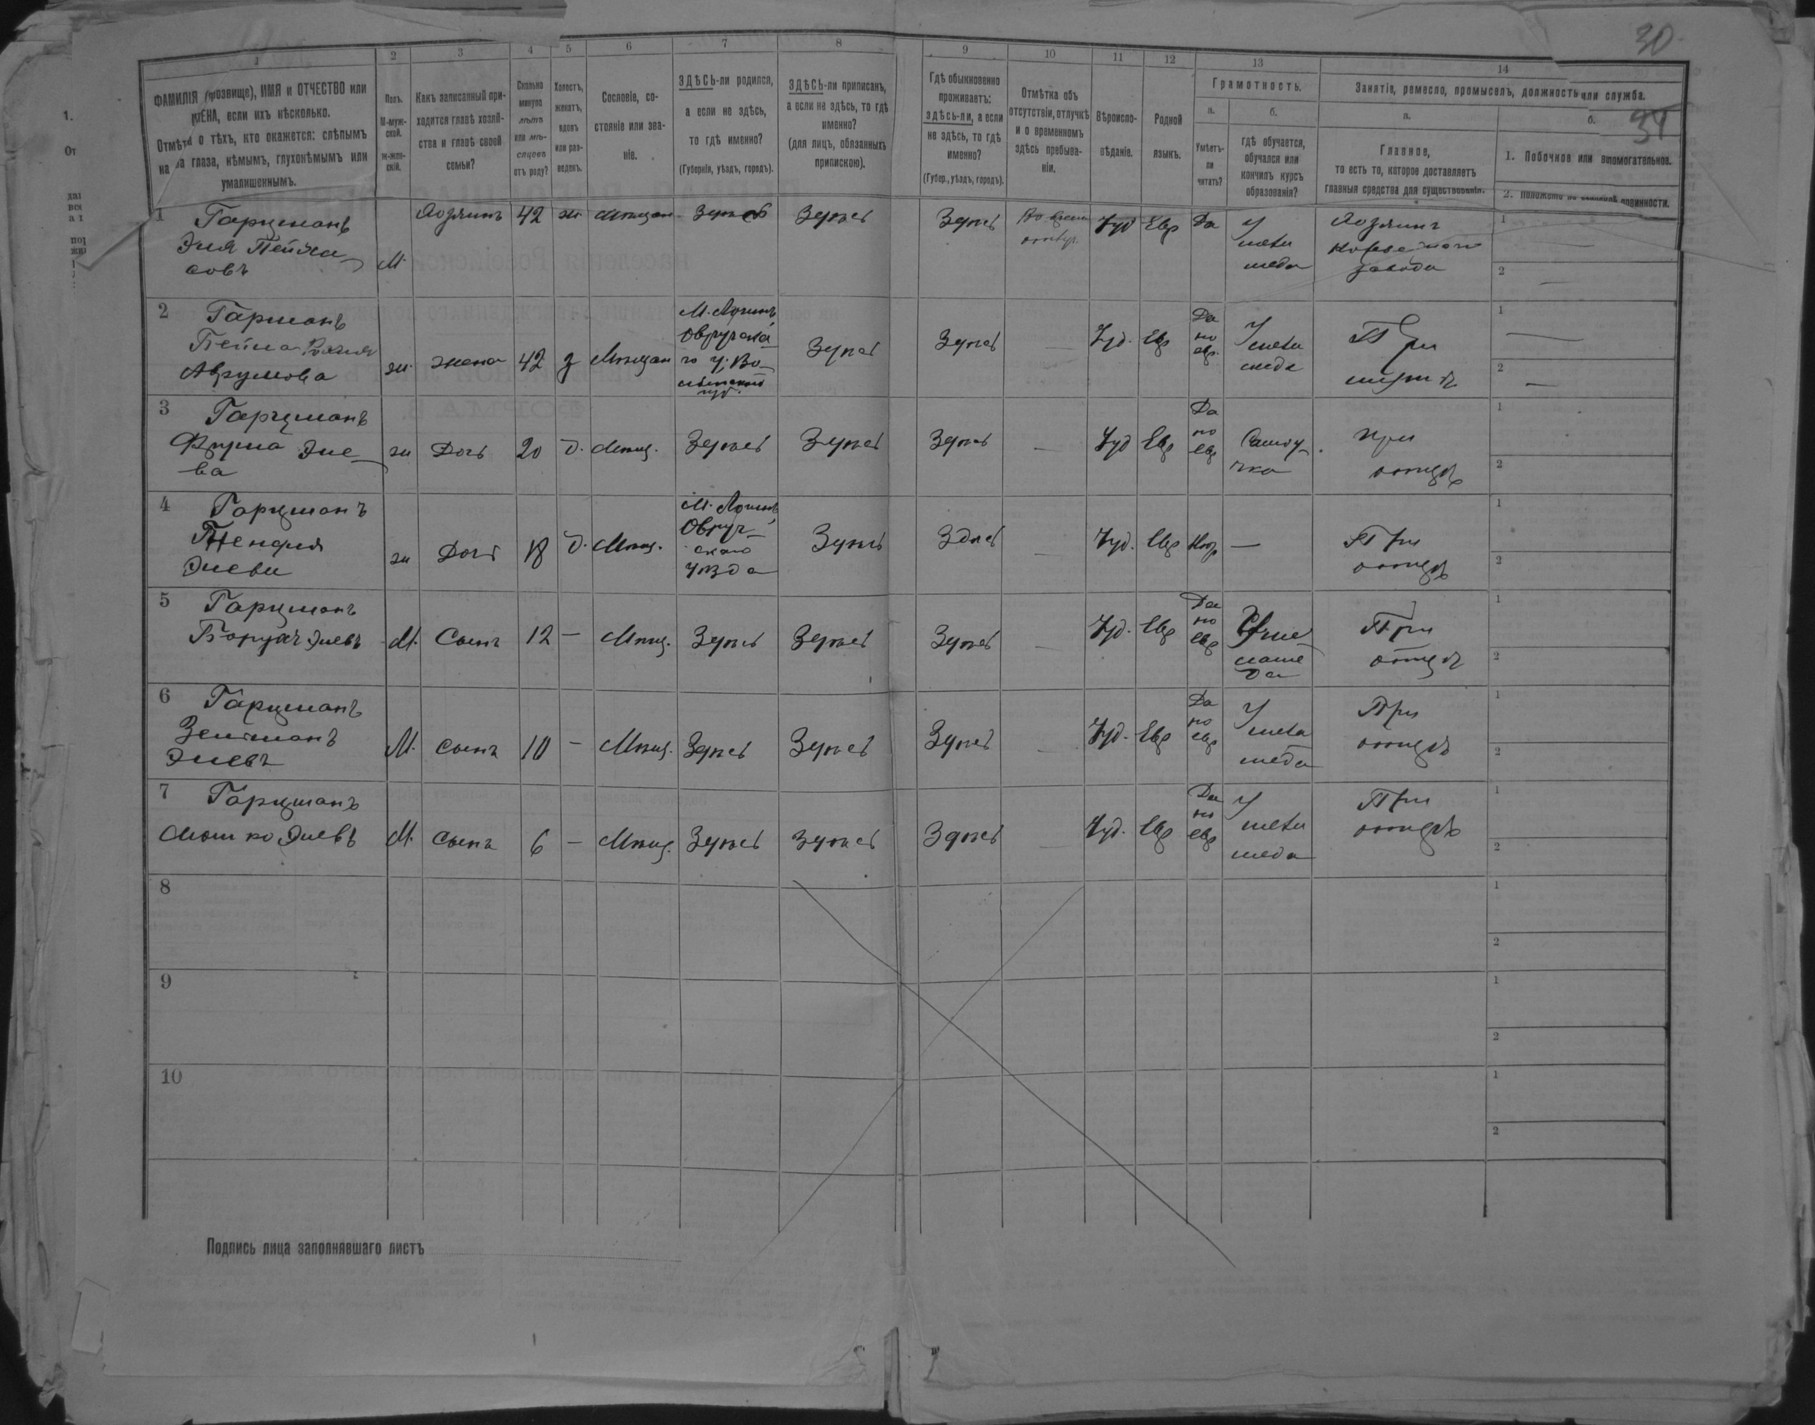 30
34
1 2 3 4 5 6 7 8 9 10 11 12 13 14
ФАМИЛІЯ (прозвище), ИМЯ и ОТЧЕСТВО или
ИМЕНА, если ихъ нѣсколько.
Отмѣтка о тѣхъ, кто окажется: слѣпымъ
на оба глаза, нѣмымъ, глухонѣмымъ или
умалишеннымъ.
Полъ.
М-муж-
ской.
ж-жен-
скій.
Какъ записанный при-
ходится главѣ хозяй-
ства и главѣ своей
семьи?
Сколько
минуло
лѣтъ
или мѣ-
сяцевъ
отъ роду?
Холостъ,
женатъ,
вдовъ
или раз-
веденъ.
Сословіе, со-
стояніе или зва-
ніе.
ЗДѢСЬ-ли родился,
а если не здѣсь,
то гдѣ именно?
(Губернія, уѣздъ, городъ).
ЗДѢСЬ-ли приписанъ,
а если не здѣсь, то гдѣ
именно?
(для лицъ, обязанныхъ
припискою).
Гдѣ обыкновенно
проживаетъ:
здѣсь-ли, а если
не здѣсь, то гдѣ
именно?
(Губер., уѣздъ, городъ).
Отмѣтка объ
отсутствіи, отлучкѣ
и о временномъ
здѣсь пребыва-
ніи.
Вѣроиспо-
вѣданіе.
Родной
языкъ.
Грамотность.
а.
Умѣетъ-
ли
читать?
б.
гдѣ обучается,
обучался или
кончилъ курсъ
образованія?
Занятіе, ремесло, промыселъ, должность или служба.
а.
Главное,
то есть то, которое доставляетъ
главныя средства для существованія.
б.
1. Побочное или вспомогательное.
2. Положеніе по воинской повинности.
1 Гарцманъ
Эля Пейса-
ховъ
М. Хозяинъ 42 ж Мѣщан. Здѣсь Здѣсь Здѣсь Іуд Евр Да
У
мела
меда
Хозяинъ
завода
1
2
2 Гарцманъ
Аврумова
ж. жена 42 з Мѣщан
Овручска
го у. Во-
лынской
губ.
Здѣсь Здѣсь — Іуд. Евр
Да
по
евр.
У
мела
меда
При
мужѣ
1
2
3 Гарцманъ
Фрума Эле-
ва
ж Дочь 20 д. Мѣщ. Здѣсь Здѣсь Здѣсь — Іуд Евр
Да
по
евр
Самоу-
чка
При
отцѣ
1
2
4 Гарцманъ
Элева
ж Дочь 18 д. Мѣщ.
Овруч-
скаго
уѣзда
Здѣсь Здѣсь — Іуд. Евр Нѣтъ —
При
отцѣ
1
2
5 Гарцманъ
Борухъ Элевъ М. Сынъ 12 — Мѣщ. Здѣсь Здѣсь Здѣсь — Іуд. Евр
Да
по
евр
При
отцѣ
1
2
6 Гарцманъ
Зельманъ
Элевъ
М. сынъ 10 — Мѣщ. Здѣсь Здѣсь Здѣсь — Іуд. Евр
Да
по
евр
У
мела
меда
При
отцѣ
1
2
7 Гарцманъ
Мошко Элевъ М. Сынъ 6 — Мѣщ. Здѣсь Здѣсь Здѣсь — Іуд. Евр
Да
по
евр
У
мела
меда
При
отцѣ
1
2
8
1
2
9
1
2
10
1
2
Подпись лица заполнявшаго листъ